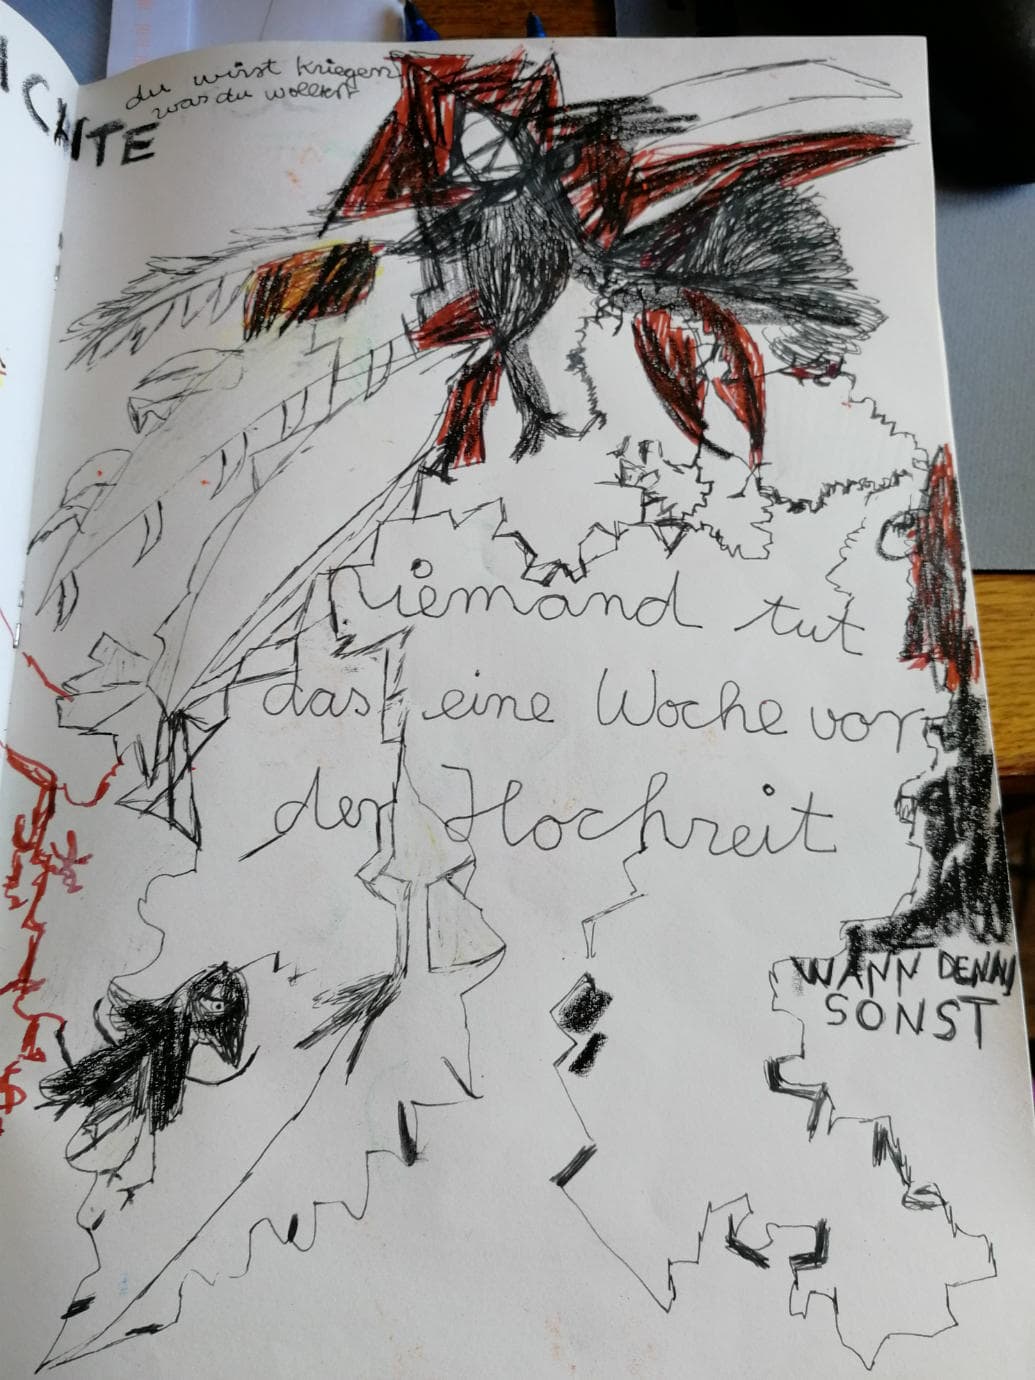 ICHTE
du wirst kriegen
was du wolltest
Niemand tut
das eine Woche vor
der Hochzeit
WANN DENN
SONST